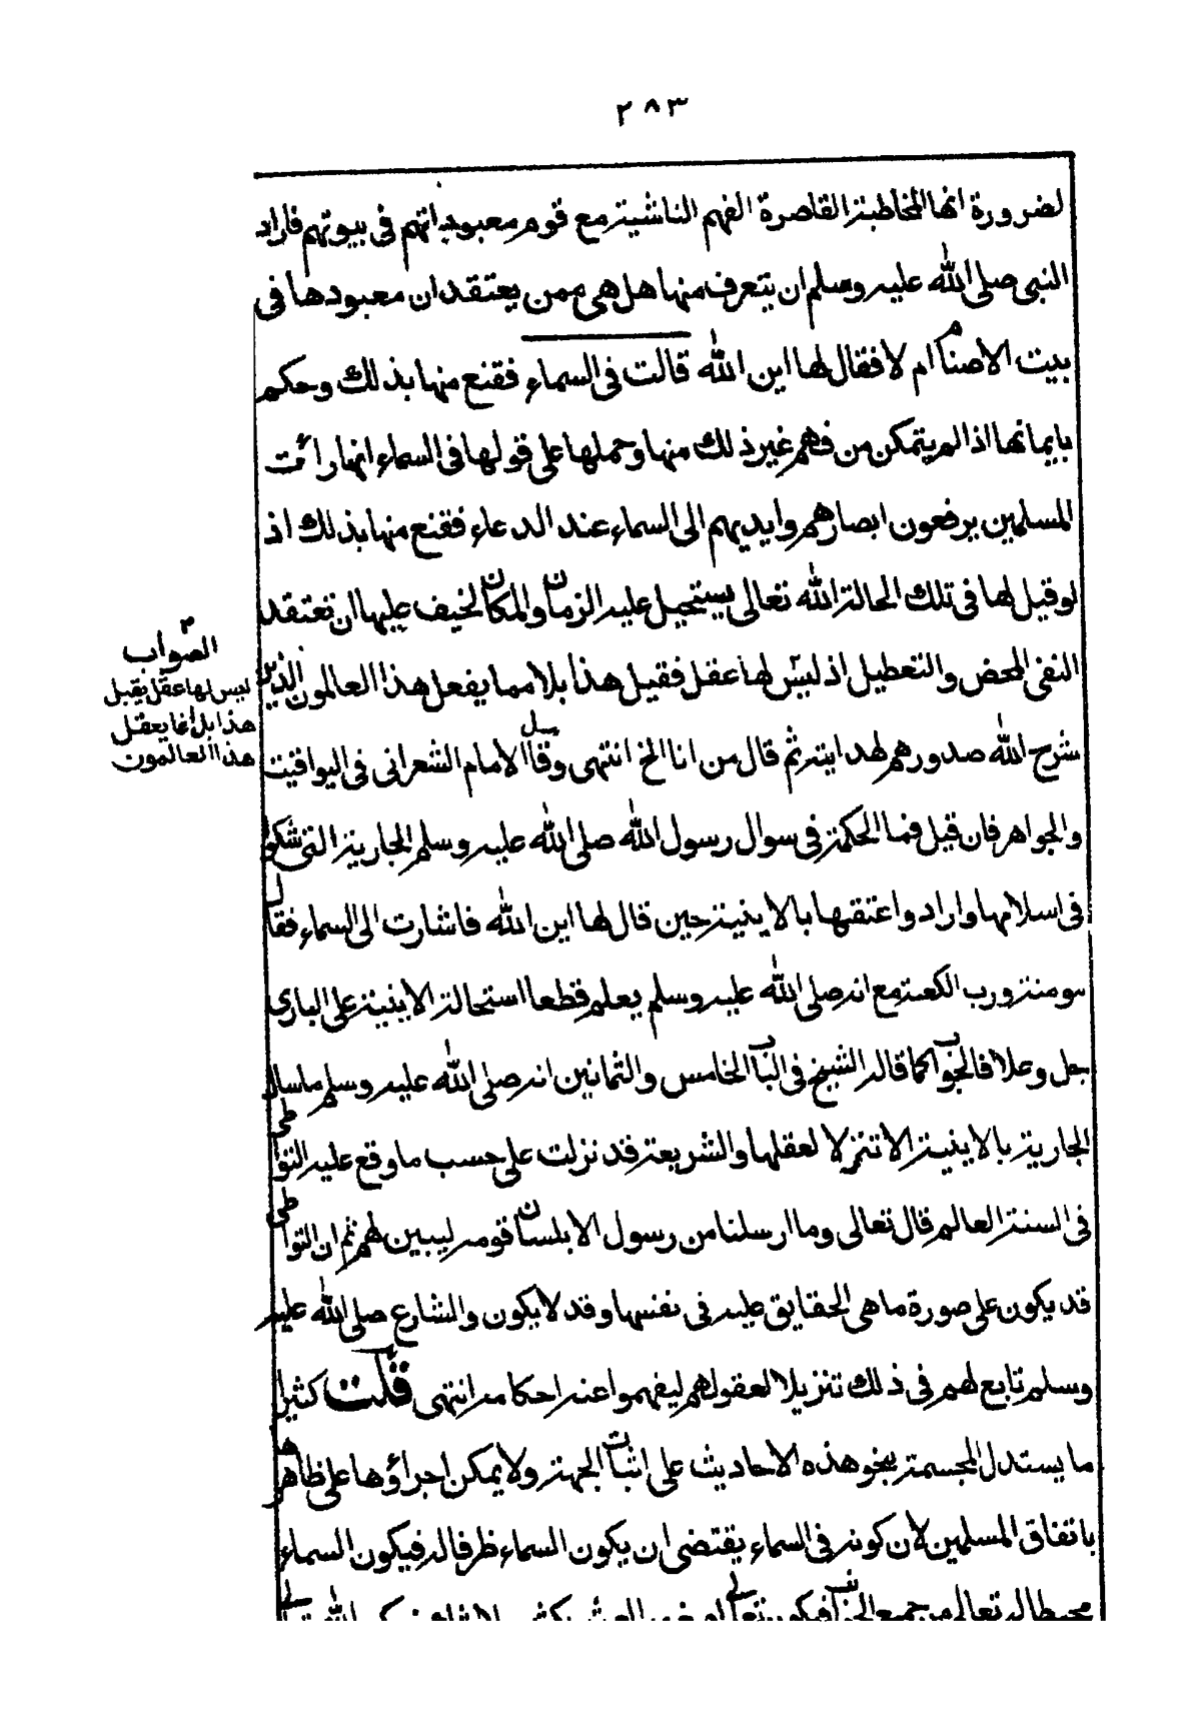 ٢٨٣
لضرورة انها المخاطبة القاصرة الفهم الناشية مع قوم معبوداتهم فى بيوتهم فاراد
النبى صلى الله عليه وسلم ان يتعرف منها هل هى ممن يعتقد ان معبودها فى
بيت الاصنام ام لا فقال لها اين الله قالت فى السماء فقنع منها بذلك وحكم
بايمانها اذ لم يتمكن من فهم غير ذلك منها وحملها على قولها فى السماء انها رائت
المسلمين يرفعون ابصارهم وايديهم الى السماء عند الدعاء فقنع منها بذلك اذ
لو قيل لها فى تلك الحالة الله تعالى يستحيل عليه الزمان والمكان لخيف عليها ان تعتقد
النفى المحض والتعطيل اذ ليس لها عقل فقيل هذا بلا مما يفعل هذا العالمون الذين
شرح الله صدورهم لهدايته ثم قال من انا الخ انتهى وقال الامام الشعرانى فى اليواقيت
والجواهر فان قيل فما الحكمة فى سوال رسول الله صلى الله عليه وسلم الجارية التى شكوا
فى اسلامها واراد واعتقها بالاينية حين قال لها اين الله فاشارت الى السماء فقال
مومنة ورب الكعبة مع انه صلى الله عليه وسلم يعلم قطعا استحالة الاينية على البارى
جل وعلا فالجواب كما قاله الشيخ فى الباب الخامس والثمانين انه صلى الله عليه وسلم ما سال
الجارية بالاينية الا تنزلا لعقلها والشريعة قد نزلت على حسب ما وقع عليه التواطى
فى السنة العالم قال تعالى وما ارسلنا من رسول الا بلسان قومه ليبين لهم ثم ان التواطى
قد يكون على صورة ما هى الحقايق عليه فى نفسها وقد لا يكون والشارع صلى الله عليه
وسلم تابع لهم فى ذلك تنزيلا لعقولهم ليفهموا عنه احكامه انتهى قلت كثيرا
ما يستدل المجسمة بنحو هذه الاحاديث على اثبات الجهة ولا يمكن اجراؤها على ظاهرها
باتفاق المسلمين لان كونه فى السماء يقتضى ان يكون السماء ظرفا له فيكون السماء
محيطا له تعالى من جميع الجوانب فيكون تعالى
الصواب
ليس لها عقل يقبل
هذا بل انما يعقل
هذا العالمون